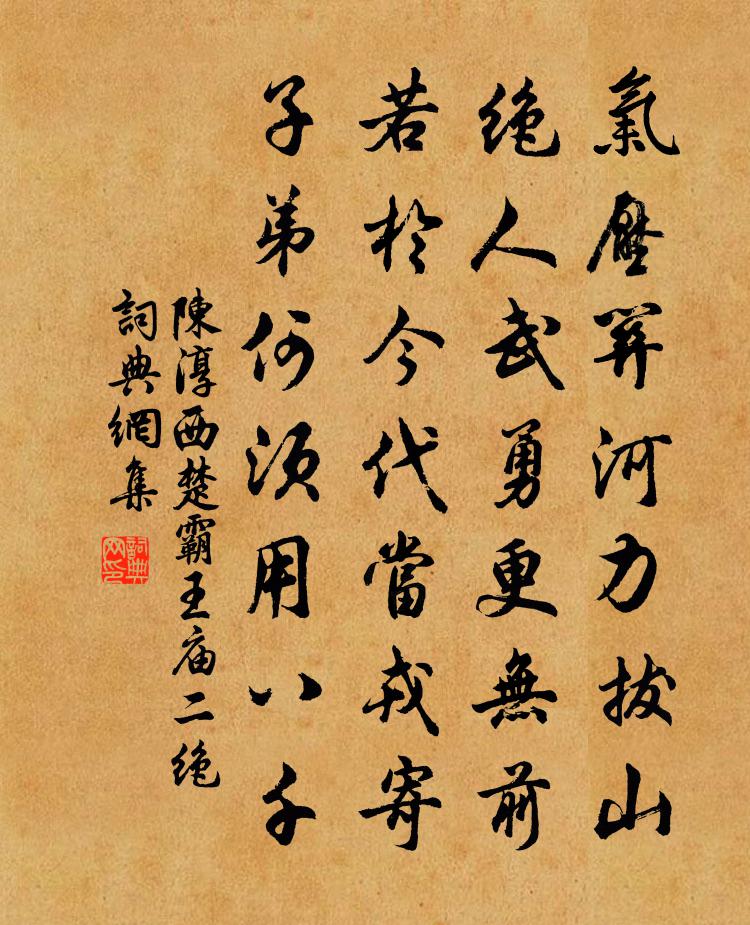 氣壓關河力拔山
絶人武勇更無前
若於今代當戎寄
子弟何須用八千
陳淳西楚霸王庙二絶
詞典網集
詞典网印